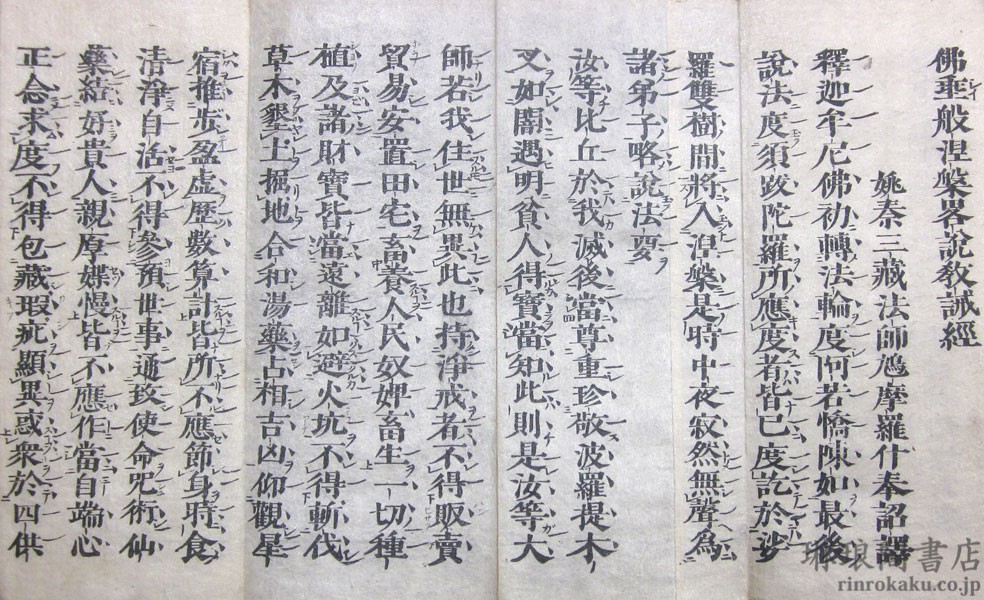 佛垂般涅槃畧說敎誡經
姚秦三藏法師鳩摩羅什奉詔譯
釋迦牟尼佛初轉法輪度阿若憍陳如最後
說法度須跋陀羅所應度者皆已度訖於娑
羅雙樹間將入涅槃是時中夜寂然無聲爲
諸弟子略說法要
汝等比丘於我滅後當尊重珍敬波羅提木
叉如闇遇明貧人得寶當知此則是汝等大
師若我住世無異此也持淨戒者不得販賣
貿易安置田宅畜養人民奴婢畜生一切種
植及諸財寶皆當遠離如避火坑不得斬伐
草木墾土掘地合和湯藥占相吉凶仰觀星
宿推步盈虛歷數算計皆所不應節身時食
清淨自活不得參預世事通致使命咒術仙
藥結好貴人親厚媟慢皆不應作當自端心
正念求度不得包藏瑕疵顯異惑衆於四供
琳琅閣書店
rinrokaku.co.jp